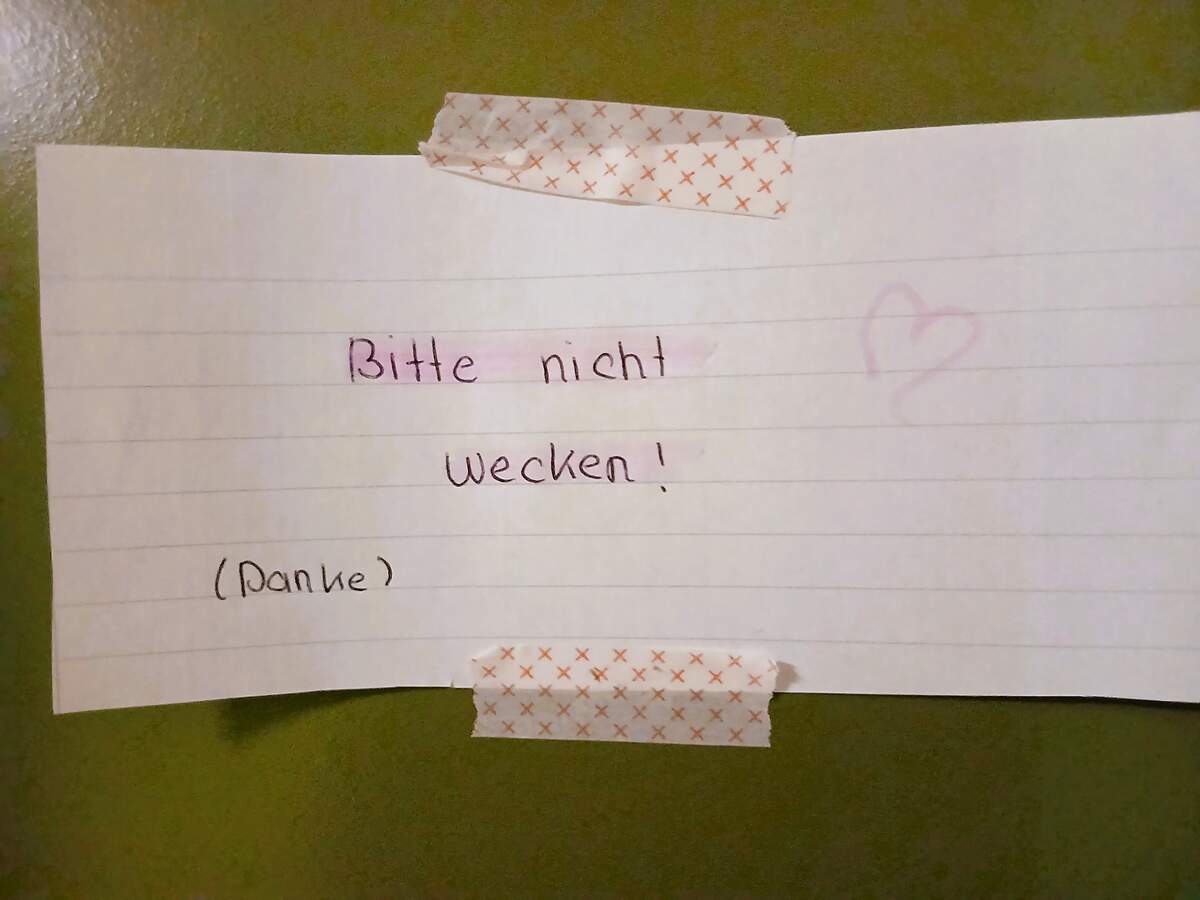 Bitte nicht
wecken!
(Danke)